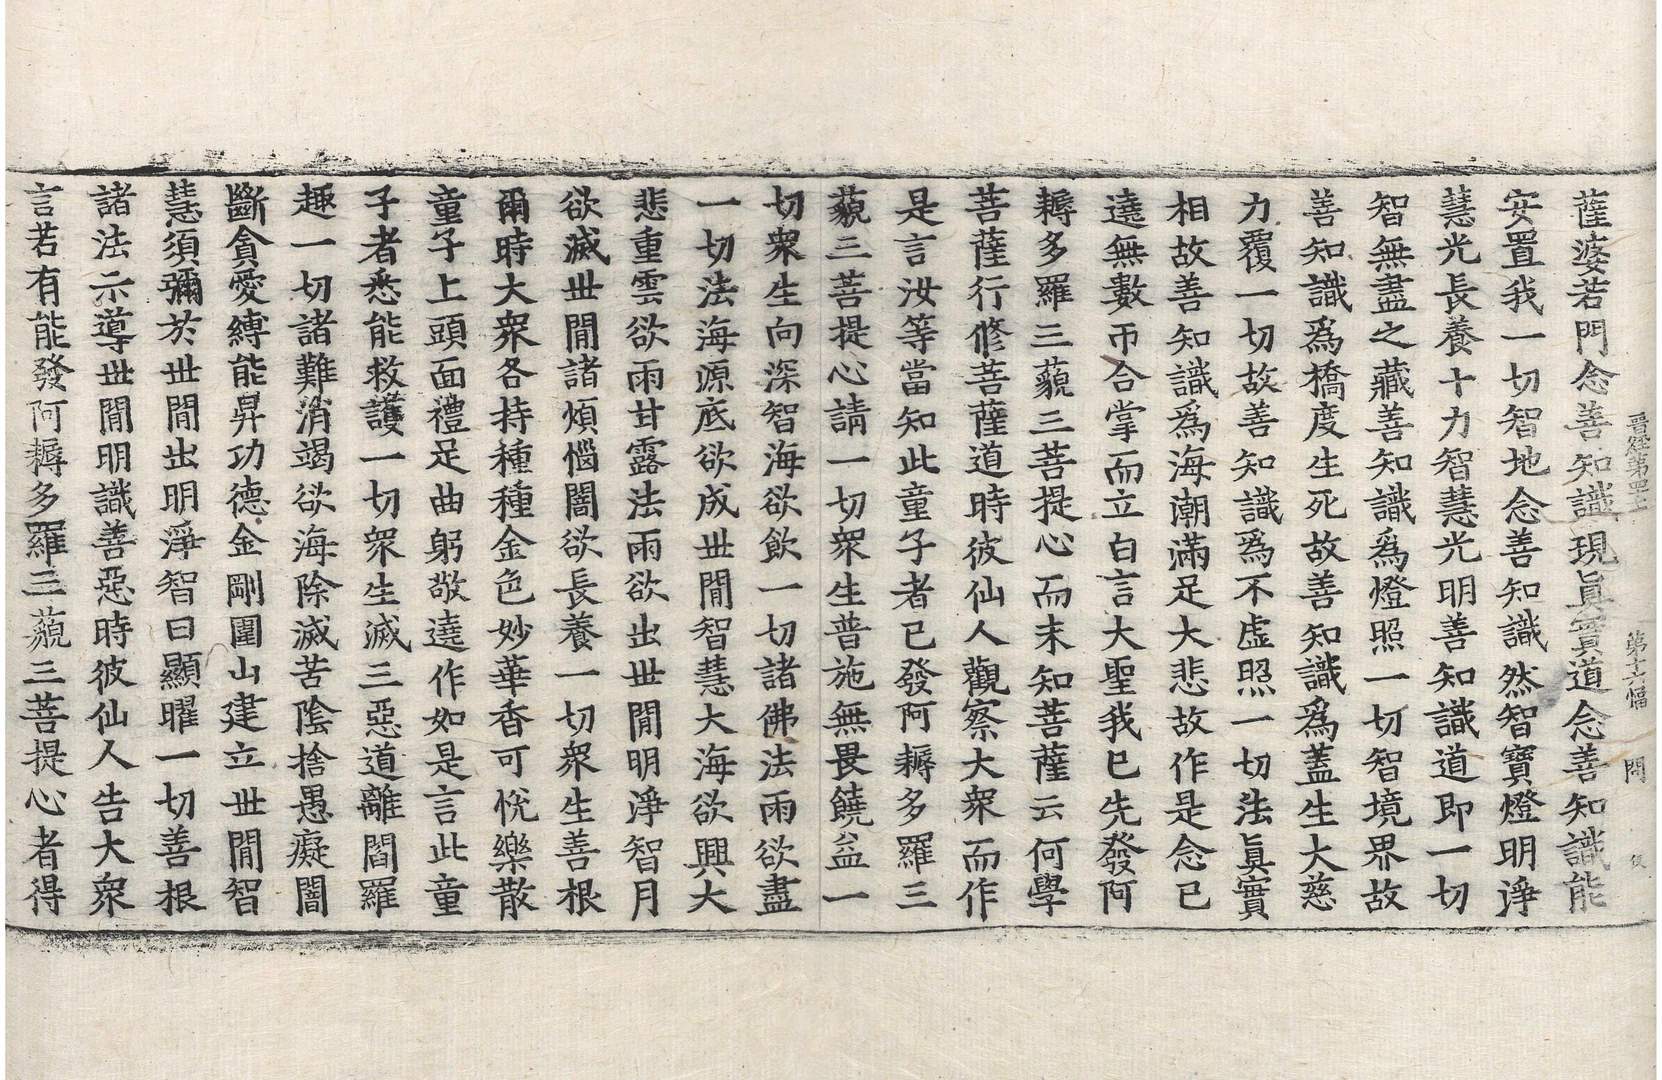 晋經第四十 第十六幅 問
薩婆若門念善知識現眞實道念善知識能
安置我一切智地念善知識然智寶燈明淨
慧光長養十力智慧光明善知識道即一切
智無盡之藏善知識爲燈照一切智境界故
善知識爲橋度生死故善知識爲蓋生大慈
力覆一切故善知識爲不虛照一切法眞實
相故善知識爲海潮滿足大悲故作是念已
遶無數帀合掌而立白言大聖我已先發阿
耨多羅三藐三菩提心而未知菩薩云何學
菩薩行修菩薩道時彼仙人觀察大衆而作
是言汝等當知此童子者已發阿耨多羅三
藐三菩提心請一切衆生普施無畏饒益一
切衆生向深智海欲飲一切諸佛法雨欲盡
一切法海源底欲成世閒智慧大海欲興大
悲重雲欲雨甘露法雨欲出世閒明淨智月
欲滅世閒諸煩惱闇欲長養一切衆生善根
爾時大衆各持種種金色妙華香可悅樂散
童子上頭面禮足曲躬敬遶作如是言此童
子者悉能救護一切衆生滅三惡道離閻羅
趣一切諸難消竭欲海除滅苦陰捨愚癡闇
斷貪愛縛能昇功德金剛圍山建立世閒智
慧須彌於世閒出明淨智日顯曜一切善根
諸法示導世閒明識善惡時彼仙人告大衆
言若有能發阿耨多羅三藐三菩提心者得